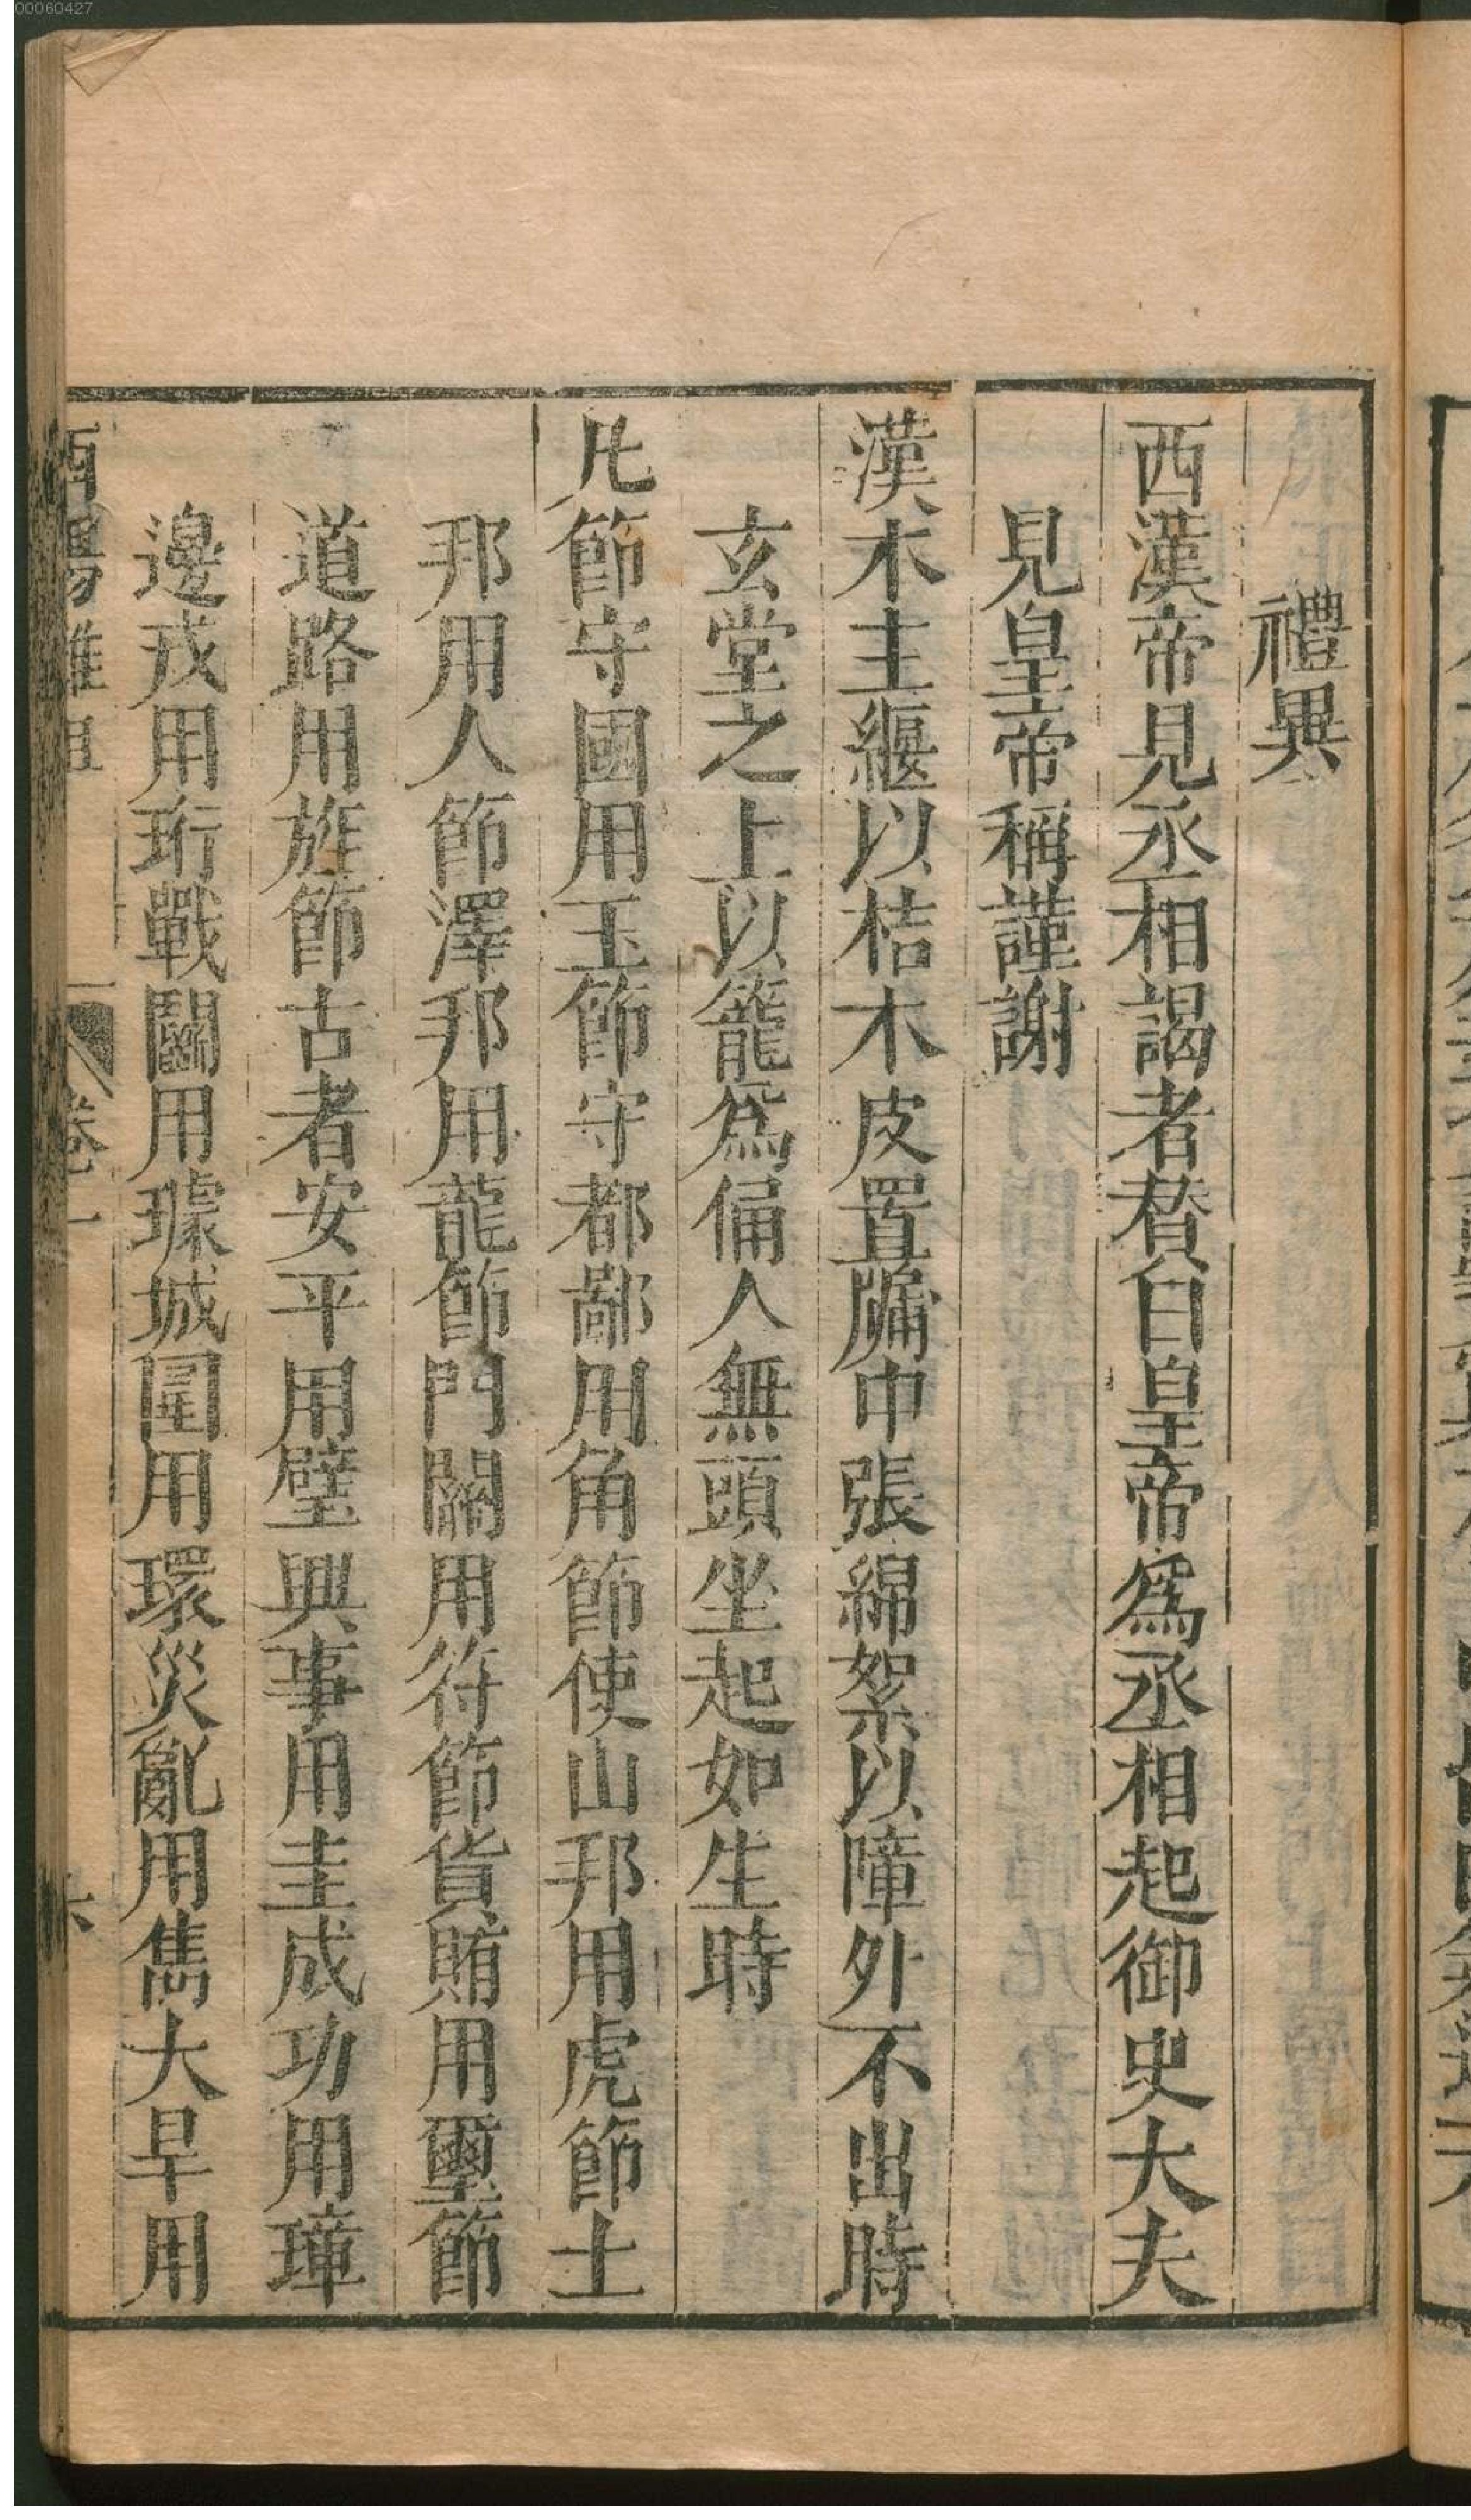 00060427
禮異
西漢帝見丞相謁者賛曰皇帝爲丞相起御史大夫
見皇帝稱謹謝
漢木主纒以桔木皮置牖中張綿絮以障外不出時
玄堂之上以籠爲俑人無頭坐起如生時
凡節守國用玉節守都鄙用角節使山邦用虎節土
邦用人節澤邦用龍節門關用符節貨賄用璽節
道路用旌節古者安平用璧興事用圭成功用璋
邊戎用珩戰鬭用璩城圍用環災亂用雋大旱用
酉陽雜俎 卷一 六